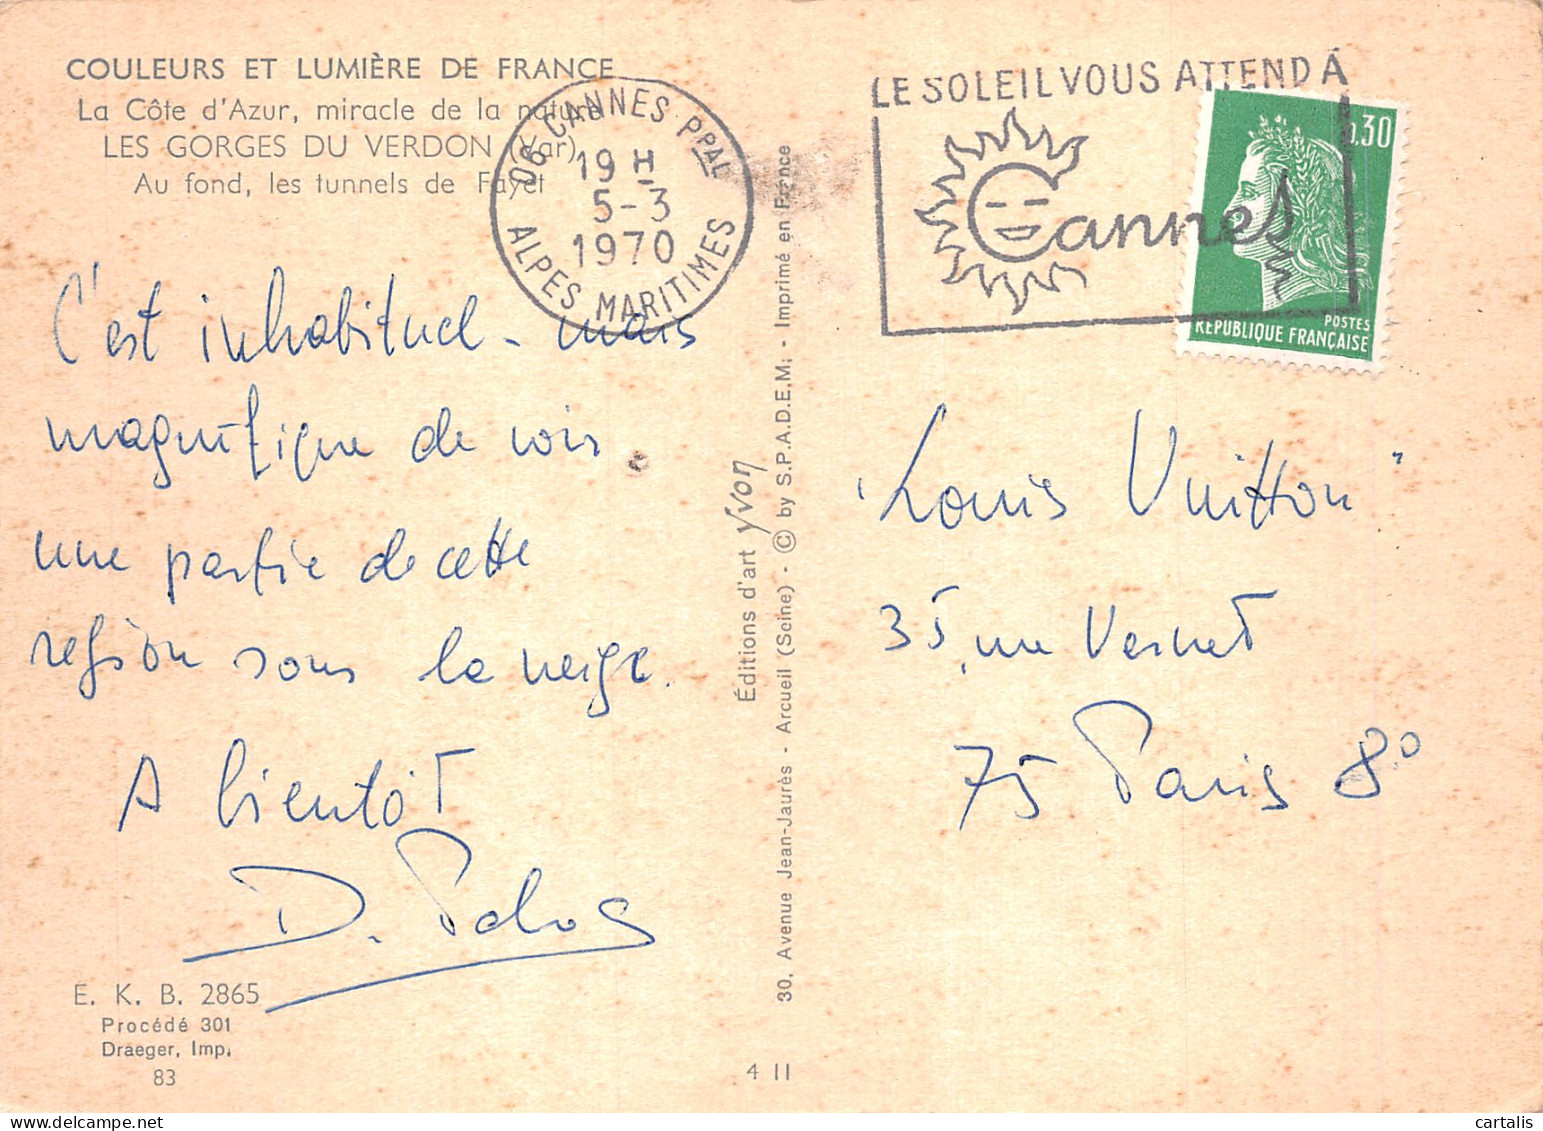 COULEURS ET LUMIÈRE DE FRANCE
La Côte d'Azur, miracle de la nature
LES GORGES DU VERDON (Var)
Au fond, les tunnels de Fayet
06 CANNES PPAL
19 H
5-3
1970
ALPES MARITIMES
LE SOLEIL VOUS ATTEND À
Cannes
0.30
POSTES
REPUBLIQUE FRANÇAISE
C'est inhabituel - mais
magnifique de voir
une partie de cette
region sous la neige.
A bientôt
D.
"Louis Vuitton"
35, rue Vernet
75 Paris 8º
Éditions d'art yvon
30, Avenue Jean-Jaurès - Arcueil (Seine) - © by S.P.A.D.E.M. - Imprimé en France
E. K. B. 2865
Procédé 301
Draeger, Imp.
83
4 11
cartalis